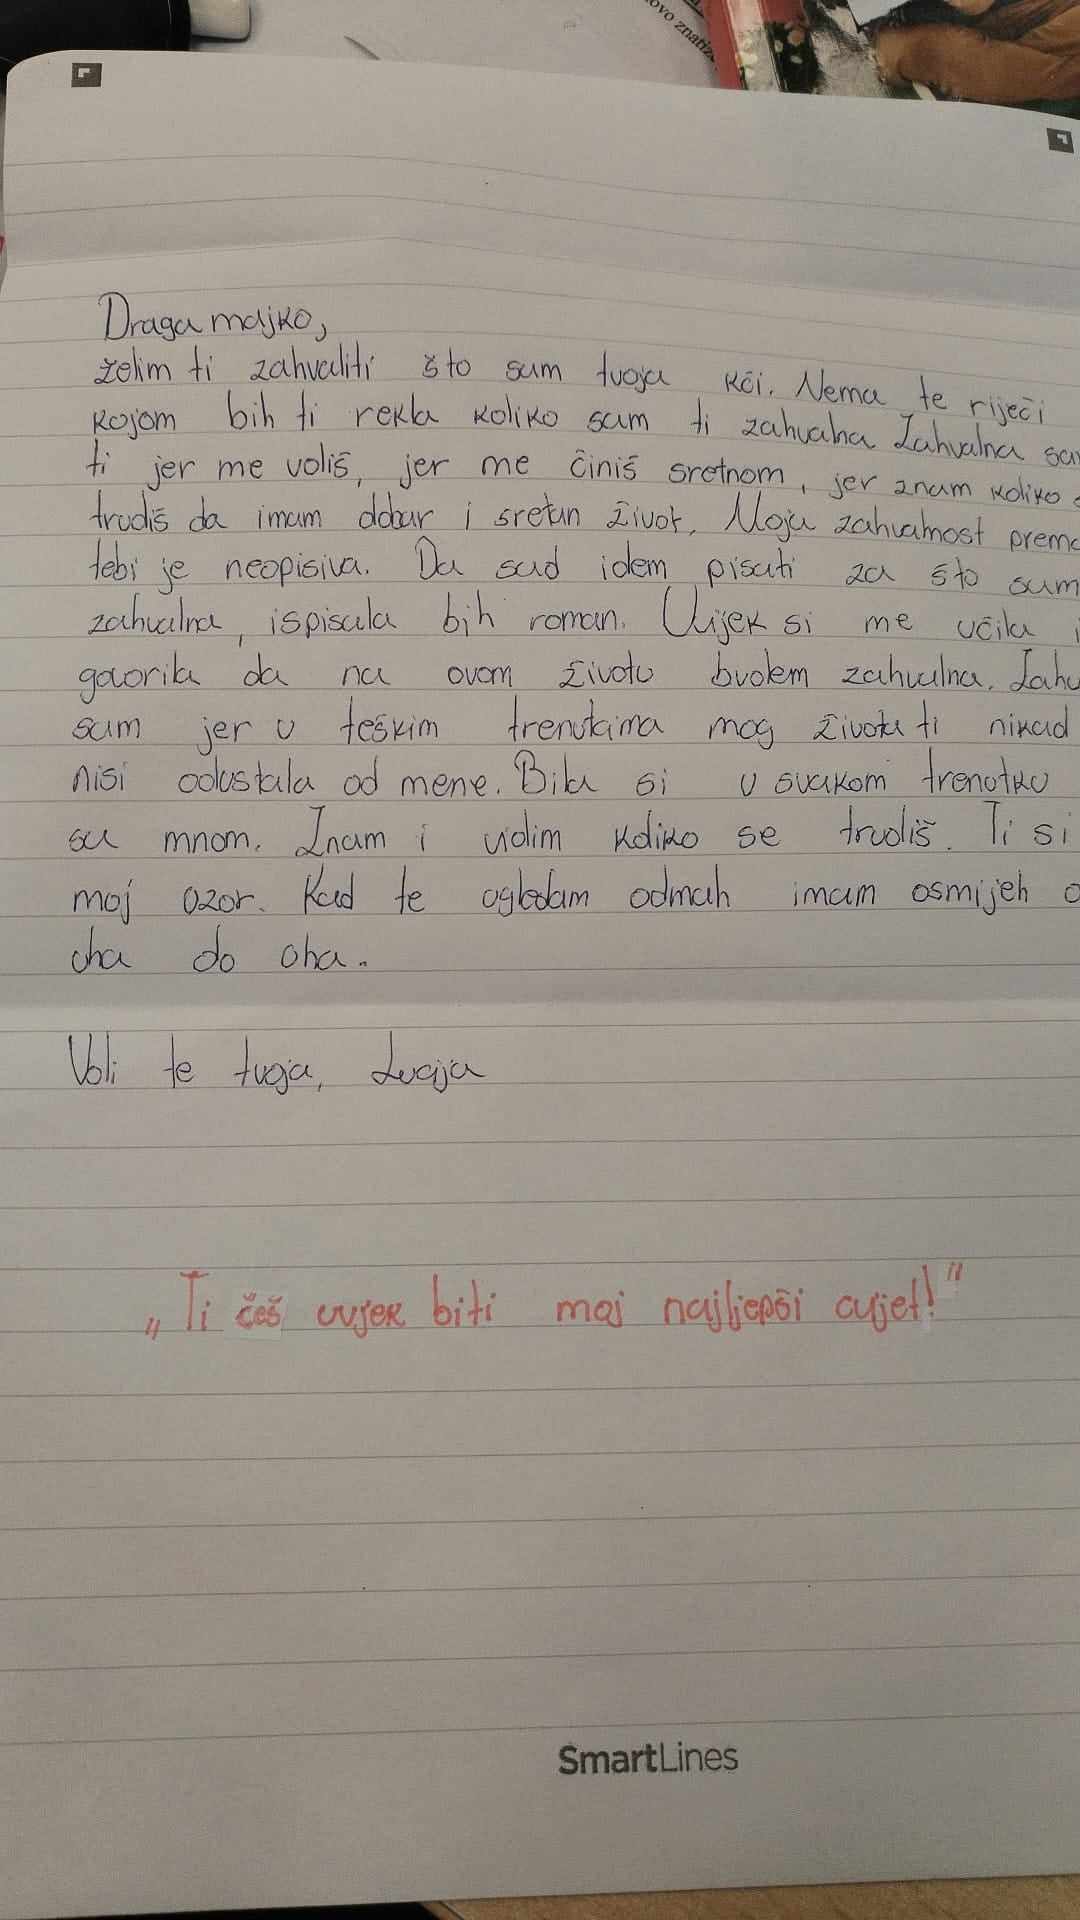 ovo znatiž
Draga majko,
želim ti zahvaliti što sam tvoja kći. Nema te riječi
kojom bih ti rekla koliko sam ti zahvalna Zahvalna sam
ti jer me voliš, jer me činiš sretnom, jer znam koliko
trudiš da imam dobar i sretan život. Moja zahvalnost prema
tebi je neopisiva. Da sad idem pisati za što sam
zahvalna, ispisala bih roman. Uvijek si me učila i
govorila da na ovom životu budem zahvalna. Zahv
sam jer u teškim trenutcima mog života ti nikad
nisi odustala od mene. Bila si u svakom trenutku
sa mnom. Znam i vidim koliko se trudiš. Ti si
moj uzor. Kad te ogledam odmah imam osmijeh o
uha do uha.
Voli te tvoja, Lucija
„Ti češ uvjek biti moj najljepši cvjet!"
SmartLines